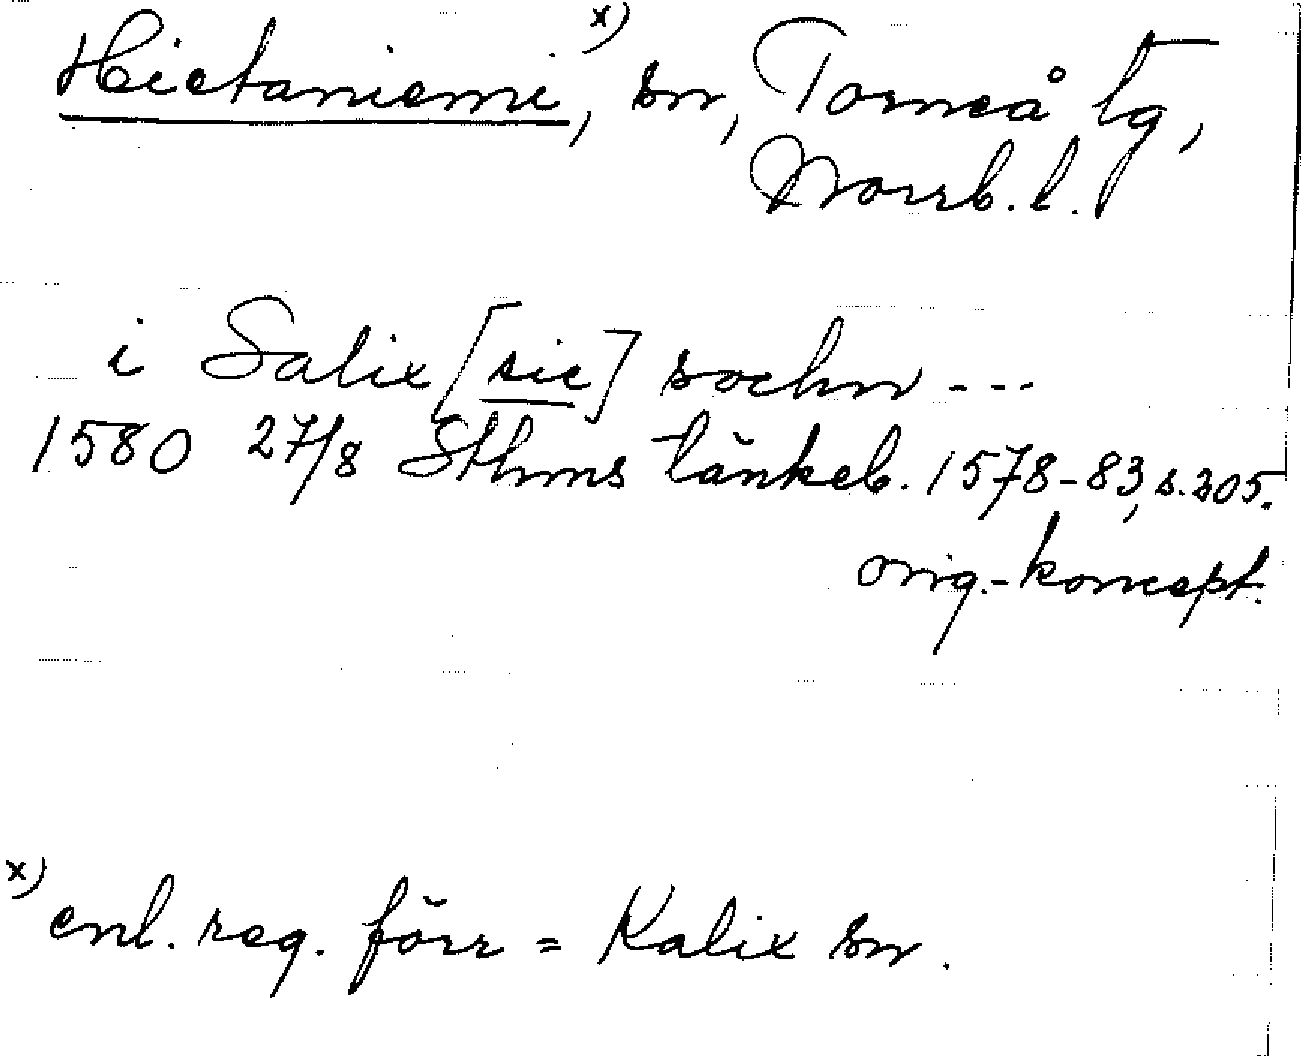 Hietaniemi, x) sn, Torneå tg,
Norrb. l.
i Salix [sic] sochn ---
1580 27/8 Sthms tänkeb. 1578-83, s. 205.
orig.-koncept.
x) enl. reg. förr = Kalix sn.